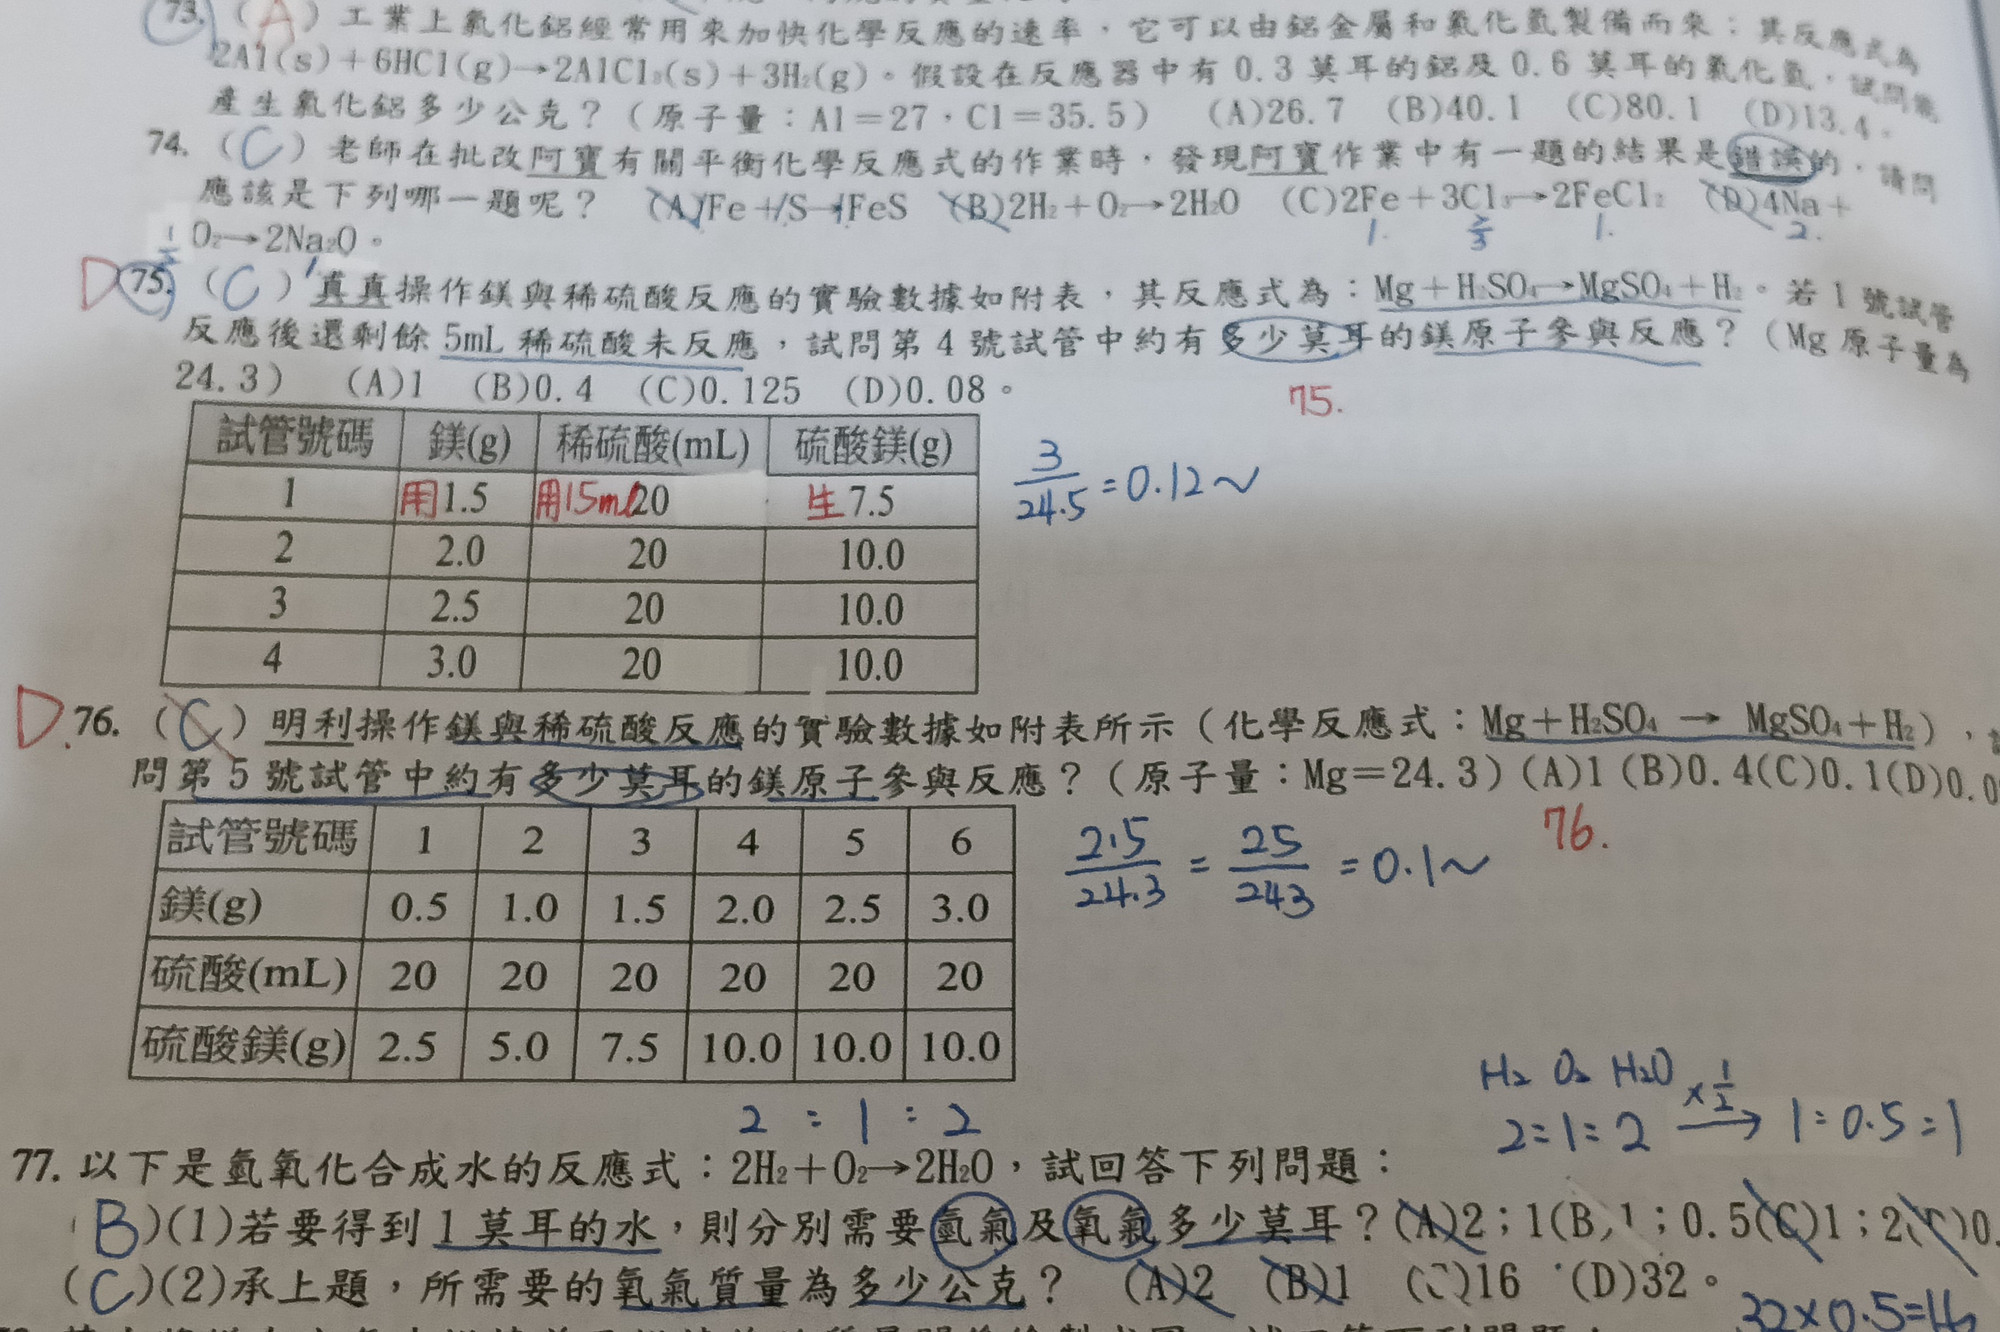 73. (A) 工業上氯化鋁經常用來加快化學反應的速率,它可以由鋁金屬和氯化氫製備而來:其反應式為
2Al(s)+6HCl(g)→2AlCl₃(s)+3H₂(g)。假設在反應器中有 0.3 莫耳的鋁及 0.6 莫耳的氯化氫,試問能
產生氯化鋁多少公克?(原子量:Al=27,Cl=35.5) (A)26.7 (B)40.1 (C)80.1 (D)13.4。
74. (C) 老師在批改阿寶有關平衡化學反應式的作業時,發現阿寶作業中有一題的結果是錯誤的,請問
應該是下列哪一題呢? (A)Fe+S→FeS (B)2H₂+O₂→2H₂O (C)2Fe+3Cl₂→2FeCl₂ (D)4Na+
1. 2/3 1. 2.
1/2 O₂→2Na₂O。
1
D 75. (C) 真真操作鎂與稀硫酸反應的實驗數據如附表,其反應式為:Mg+H₂SO₄→MgSO₄+H₂。若 1 號試管
反應後還剩餘 5mL 稀硫酸未反應,試問第 4 號試管中約有多少莫耳的鎂原子參與反應?(Mg 原子量為
24.3) (A)1 (B)0.4 (C)0.125 (D)0.08。
75.
試管號碼 鎂(g) 稀硫酸(mL) 硫酸鎂(g)
1 用1.5 用15ml20 生7.5
2 2.0 20 10.0
3 2.5 20 10.0
4 3.0 20 10.0
3/24.5 = 0.12~
D 76. (C) 明利操作鎂與稀硫酸反應的實驗數據如附表所示(化學反應式:Mg+H₂SO₄ → MgSO₄+H₂),
問第 5 號試管中約有多少莫耳的鎂原子參與反應?(原子量:Mg=24.3)(A)1 (B)0.4(C)0.1(D)0.0
76.
試管號碼 1 2 3 4 5 6
鎂(g) 0.5 1.0 1.5 2.0 2.5 3.0
硫酸(mL) 20 20 20 20 20 20
硫酸鎂(g) 2.5 5.0 7.5 10.0 10.0 10.0
2.5/24.3 = 25/243 = 0.1~
H₂ O₂ H₂O
2:1:2 ×1/2→ 1:0.5:1
2 : 1 : 2
77. 以下是氫氧化合成水的反應式:2H₂+O₂→2H₂O,試回答下列問題:
(B)(1)若要得到 1 莫耳的水,則分別需要氫氣及氧氣多少莫耳?(A)2;1(B)1;0.5(C)1;2(D)0.
(C)(2)承上題,所需要的氧氣質量為多少公克? (A)2 (B)1 (C)16 (D)32。
32×0.5=16